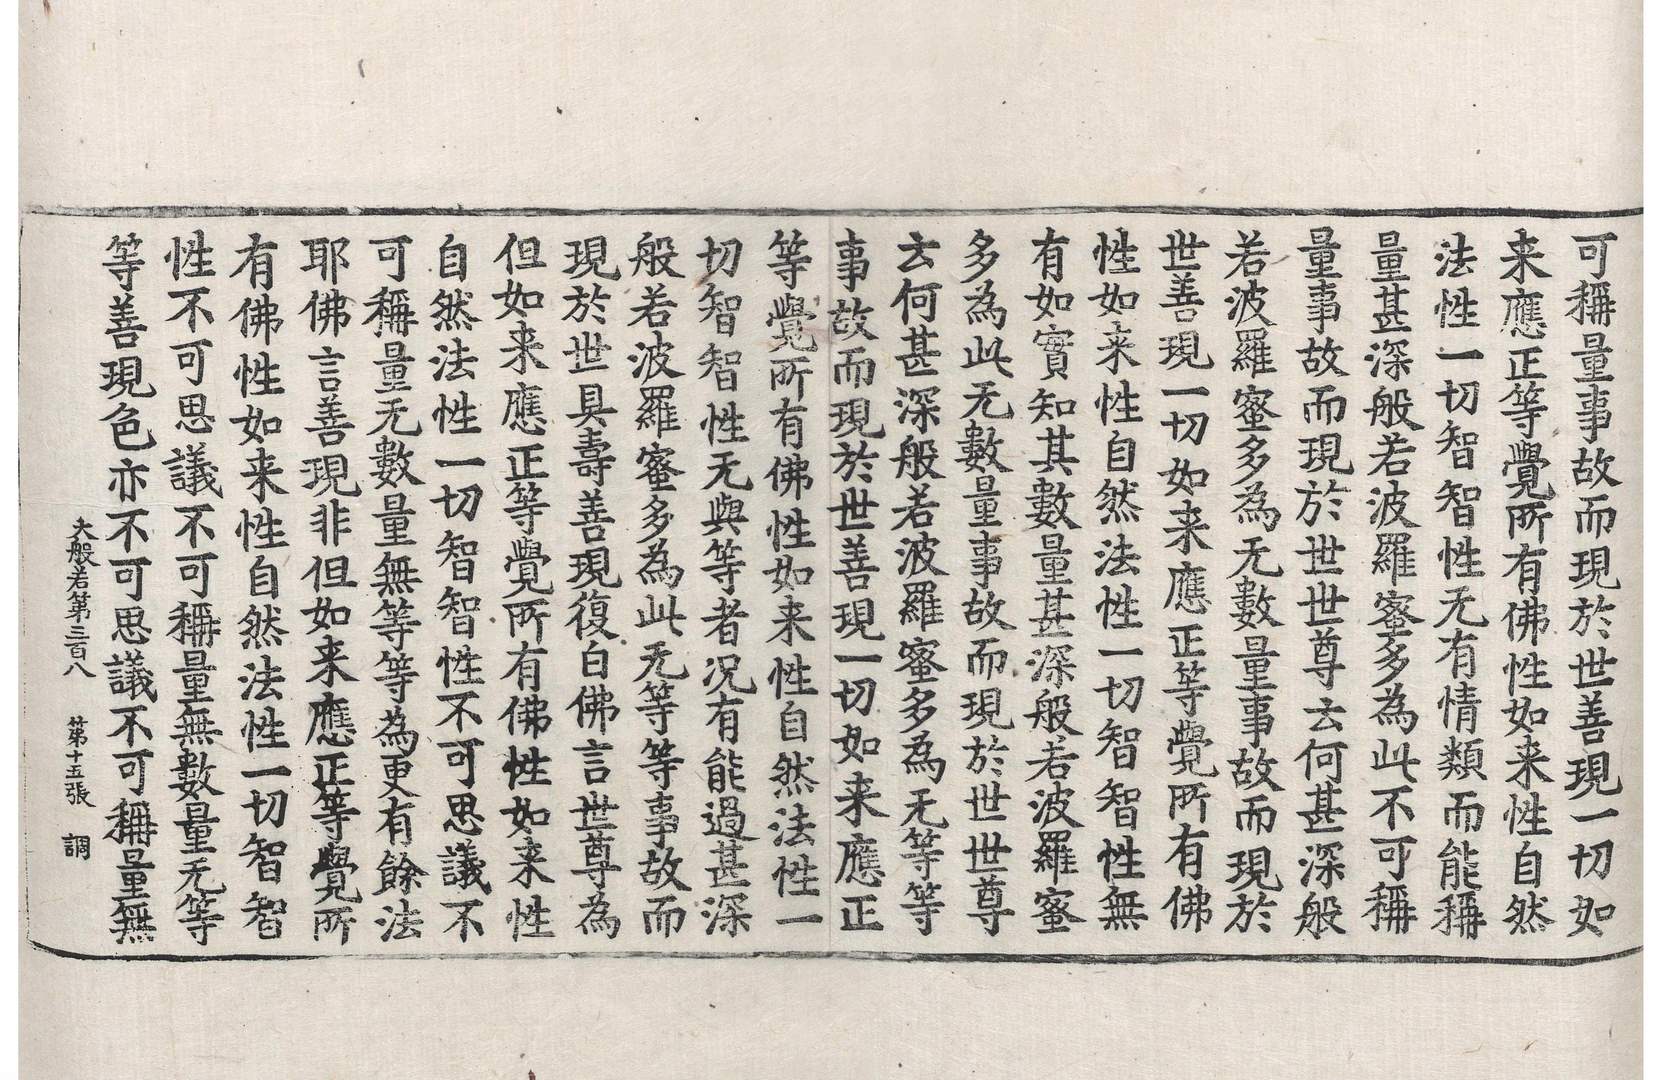 可稱量事故而現於世善現一切如
来應正等覺所有佛性如来性自然
法性一切智智性无有情類而能稱
量甚深般若波羅蜜多為此不可稱
量事故而現於世世尊云何甚深般
若波羅蜜多為无數量事故而現於
世善現一切如来應正等覺所有佛
性如来性自然法性一切智智性無
有如實知其數量甚深般若波羅蜜
多為此无數量事故而現於世世尊
云何甚深般若波羅蜜多為无等等
事故而現於世善現一切如来應正
等覺所有佛性如来性自然法性一
切智智性无與等者況有能過甚深
般若波羅蜜多為此无等等事故而
現於世具壽善現復白佛言世尊為
但如来應正等覺所有佛性如来性
自然法性一切智智性不可思議不
可稱量无數量無等等為更有餘法
耶佛言善現非但如来應正等覺所
有佛性如来性自然法性一切智智
性不可思議不可稱量無數量无等
等善現色亦不可思議不可稱量無
大般若第三百八 第十五張 調